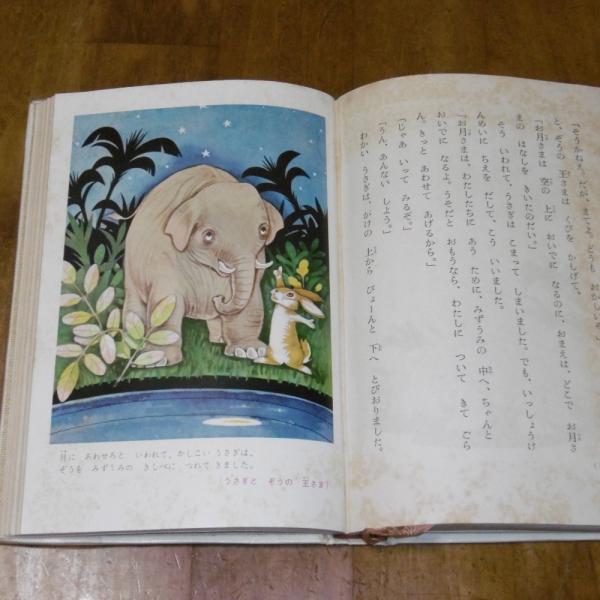 「そうかねう。だが、まてよ。どうも おかしいぞ。」
と、ぞうの 王さまは くびを かしげて。
「お月さまは 空の 上に おいでに なるのに、おまえは、どこで お月さ
まの はなしを きいたのだい。」
そう いわれて、うさぎは こまって しまいました。でも、いっしょうけ
んめいに ちえを だして、こう いいました。
「お月さまは、わたしたちに あう ために、みずうみの 中へ、ちゃんと
おいでに なるよ。うそだと おもうなら、わたしに ついて きて ごら
ん。きっと あわせて あげるから。」
「じゃあ いって みるぞ。」
「うん、あんない しよう。」
わかい うさぎは、がけの 上から ぴょーんと 下へ とびおりました。
月に あわせろと いわれて、かしこい うさぎは、
ぞうを みずうみの きしべに つれて きました。
（うさぎと ぞうの 王さま）